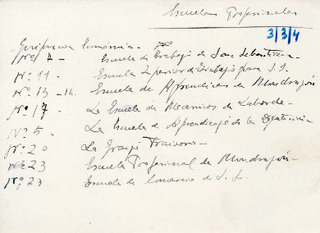 Escuelas Profesionales
3/3/4
Guipuzcoa Economica
Nº 7 - Escuela de Trabajo de San Sebastian -
Nº 11 - Escuela Superior de Trabajo para S.S.
Nº 13 - 14 Escuela de Aprendices de Mondragón
Nº 17 - La Escuela de Mecanica de Laborde -
Nº 5 - La Escuela de Aprendizaje de la
Nº 20 La Granja Fraisoro -
Nº 23 Escuela Profesional de Mondragón -
Nº 23 Escuela de Comercio de S. S.